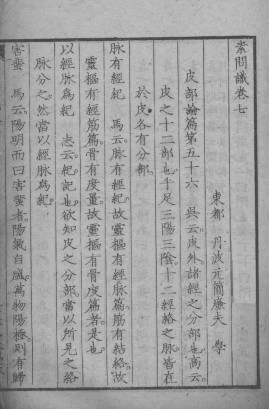 素問識卷七
東都 丹波元簡廉夫 學
皮部論篇第五十六 吳云皮外諸經之分部也高云
皮之十二部也手足三陽三陰十二經絡之脉皆在
於皮各有分部
脉有經紀 馬云脉有經紀故靈樞有經脉篇筋有結絡故
靈樞有經筋篇骨有度量故靈樞有骨度篇者是也
以經脉爲紀 志云紀記也欲知皮之分部當以所見之絡
脉分之然當以經脉爲紀
害蜚 馬云陽明而曰害蜚者陽氣自盛萬物陽極則有歸